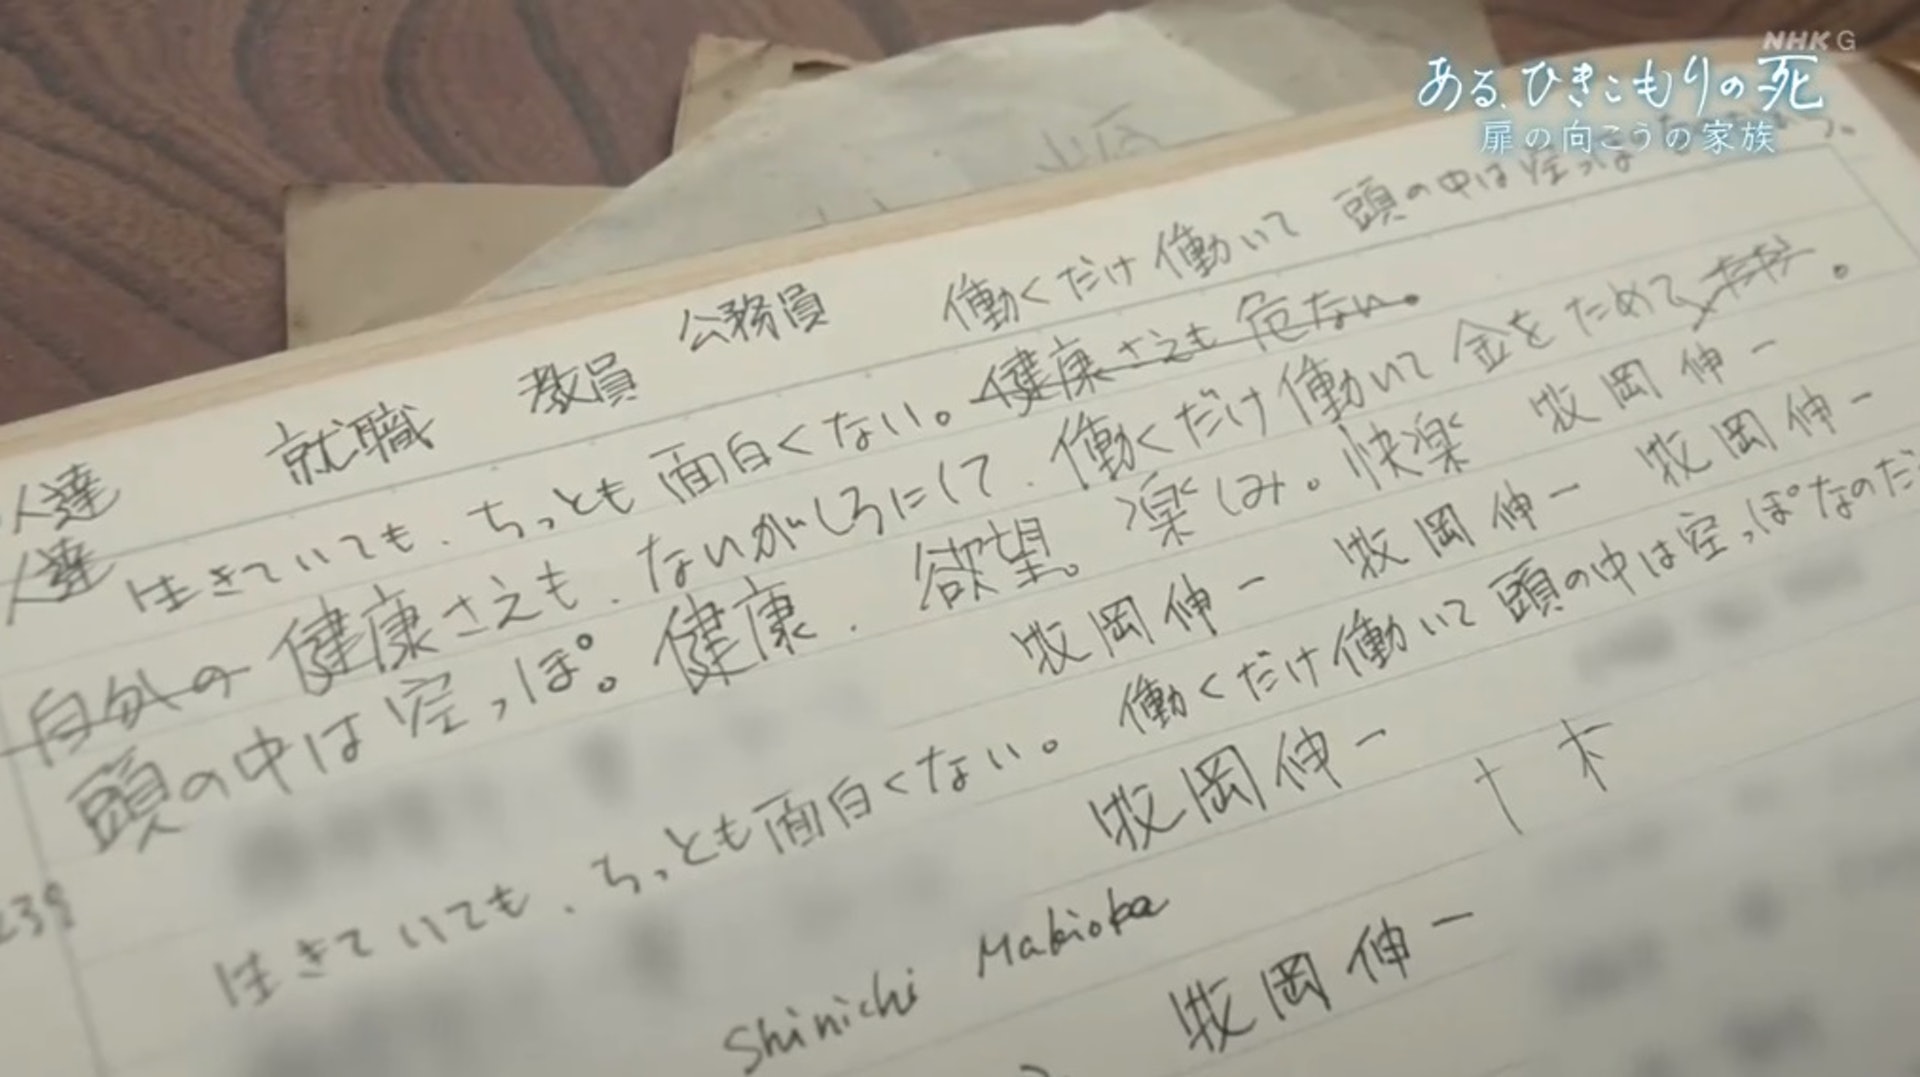 NHK G
ある、ひきこもりの死
扉の向こうの家族
人達 就職 教員 公務員 働くだけ働いて 頭の中は空っぽ
人達 生きていても、ちっとも面白くない。健康さえも危ない。
自分の健康さえも、ないがしろにして、働くだけ働いて金をためて
頭の中は空っぽ。健康、欲望。楽しみ。快楽 牧岡伸一
牧岡伸一 牧岡伸一 牧岡伸一
生きていても、ちっとも面白くない。働くだけ働いて頭の中は空っぽなのだ
牧岡伸一 十 木
Shinichi Makioka
牧岡伸一